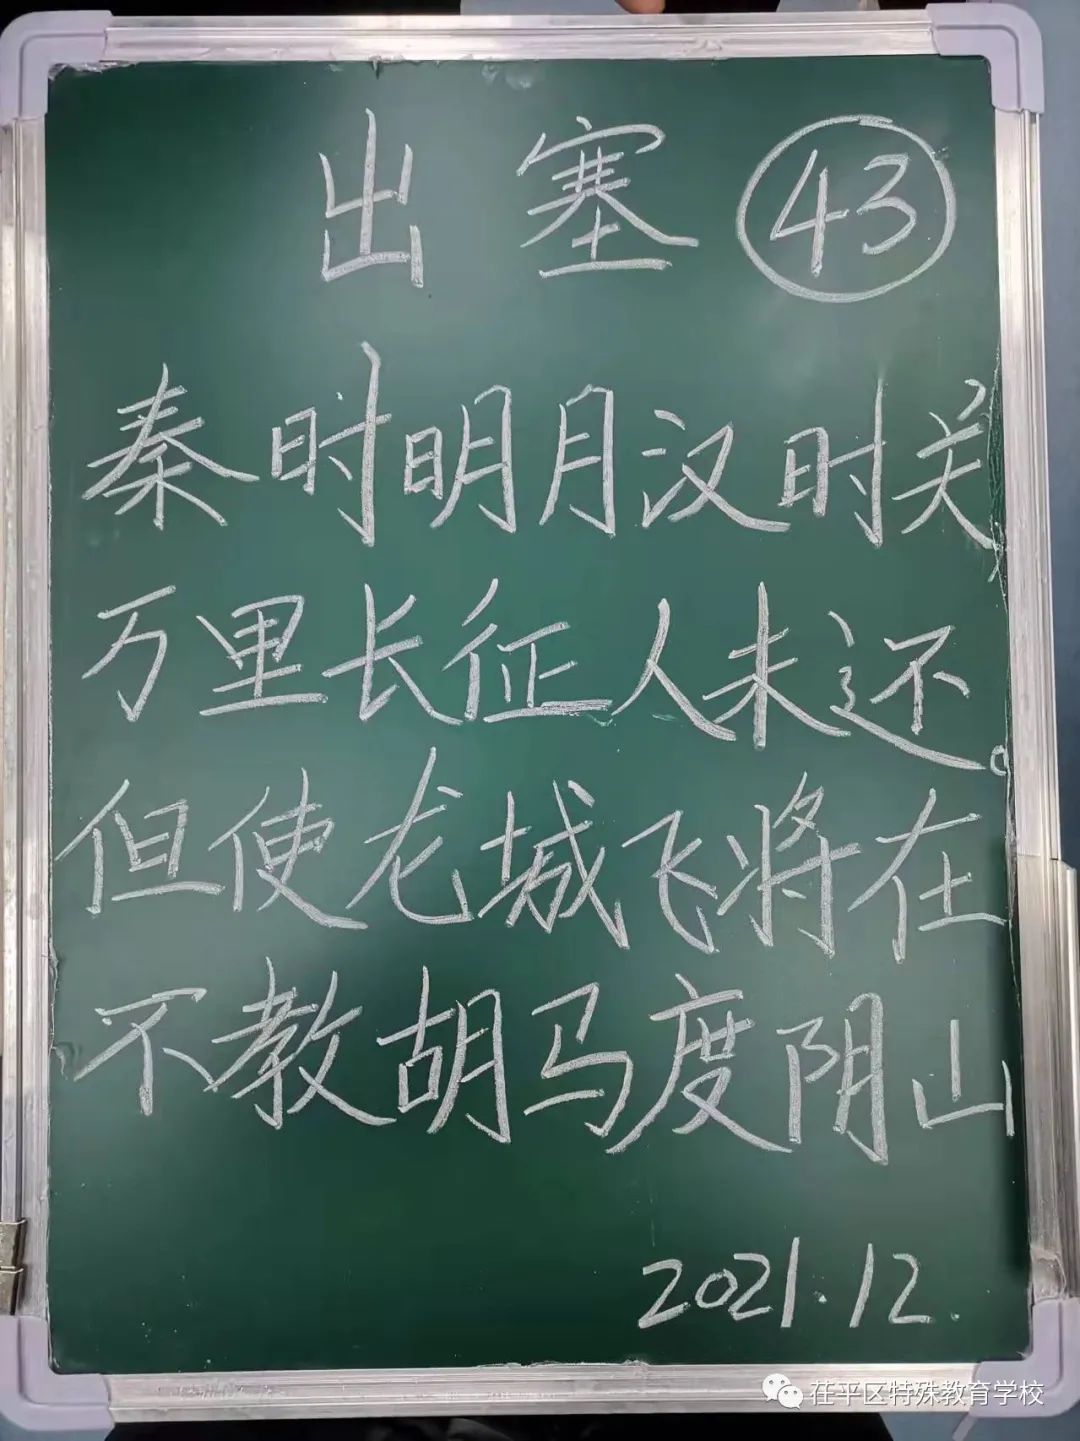 出塞 43
秦时明月汉时关,
万里长征人未还。
但使龙城飞将在
不教胡马度阴山
2021.12.
茌平区特殊教育学校